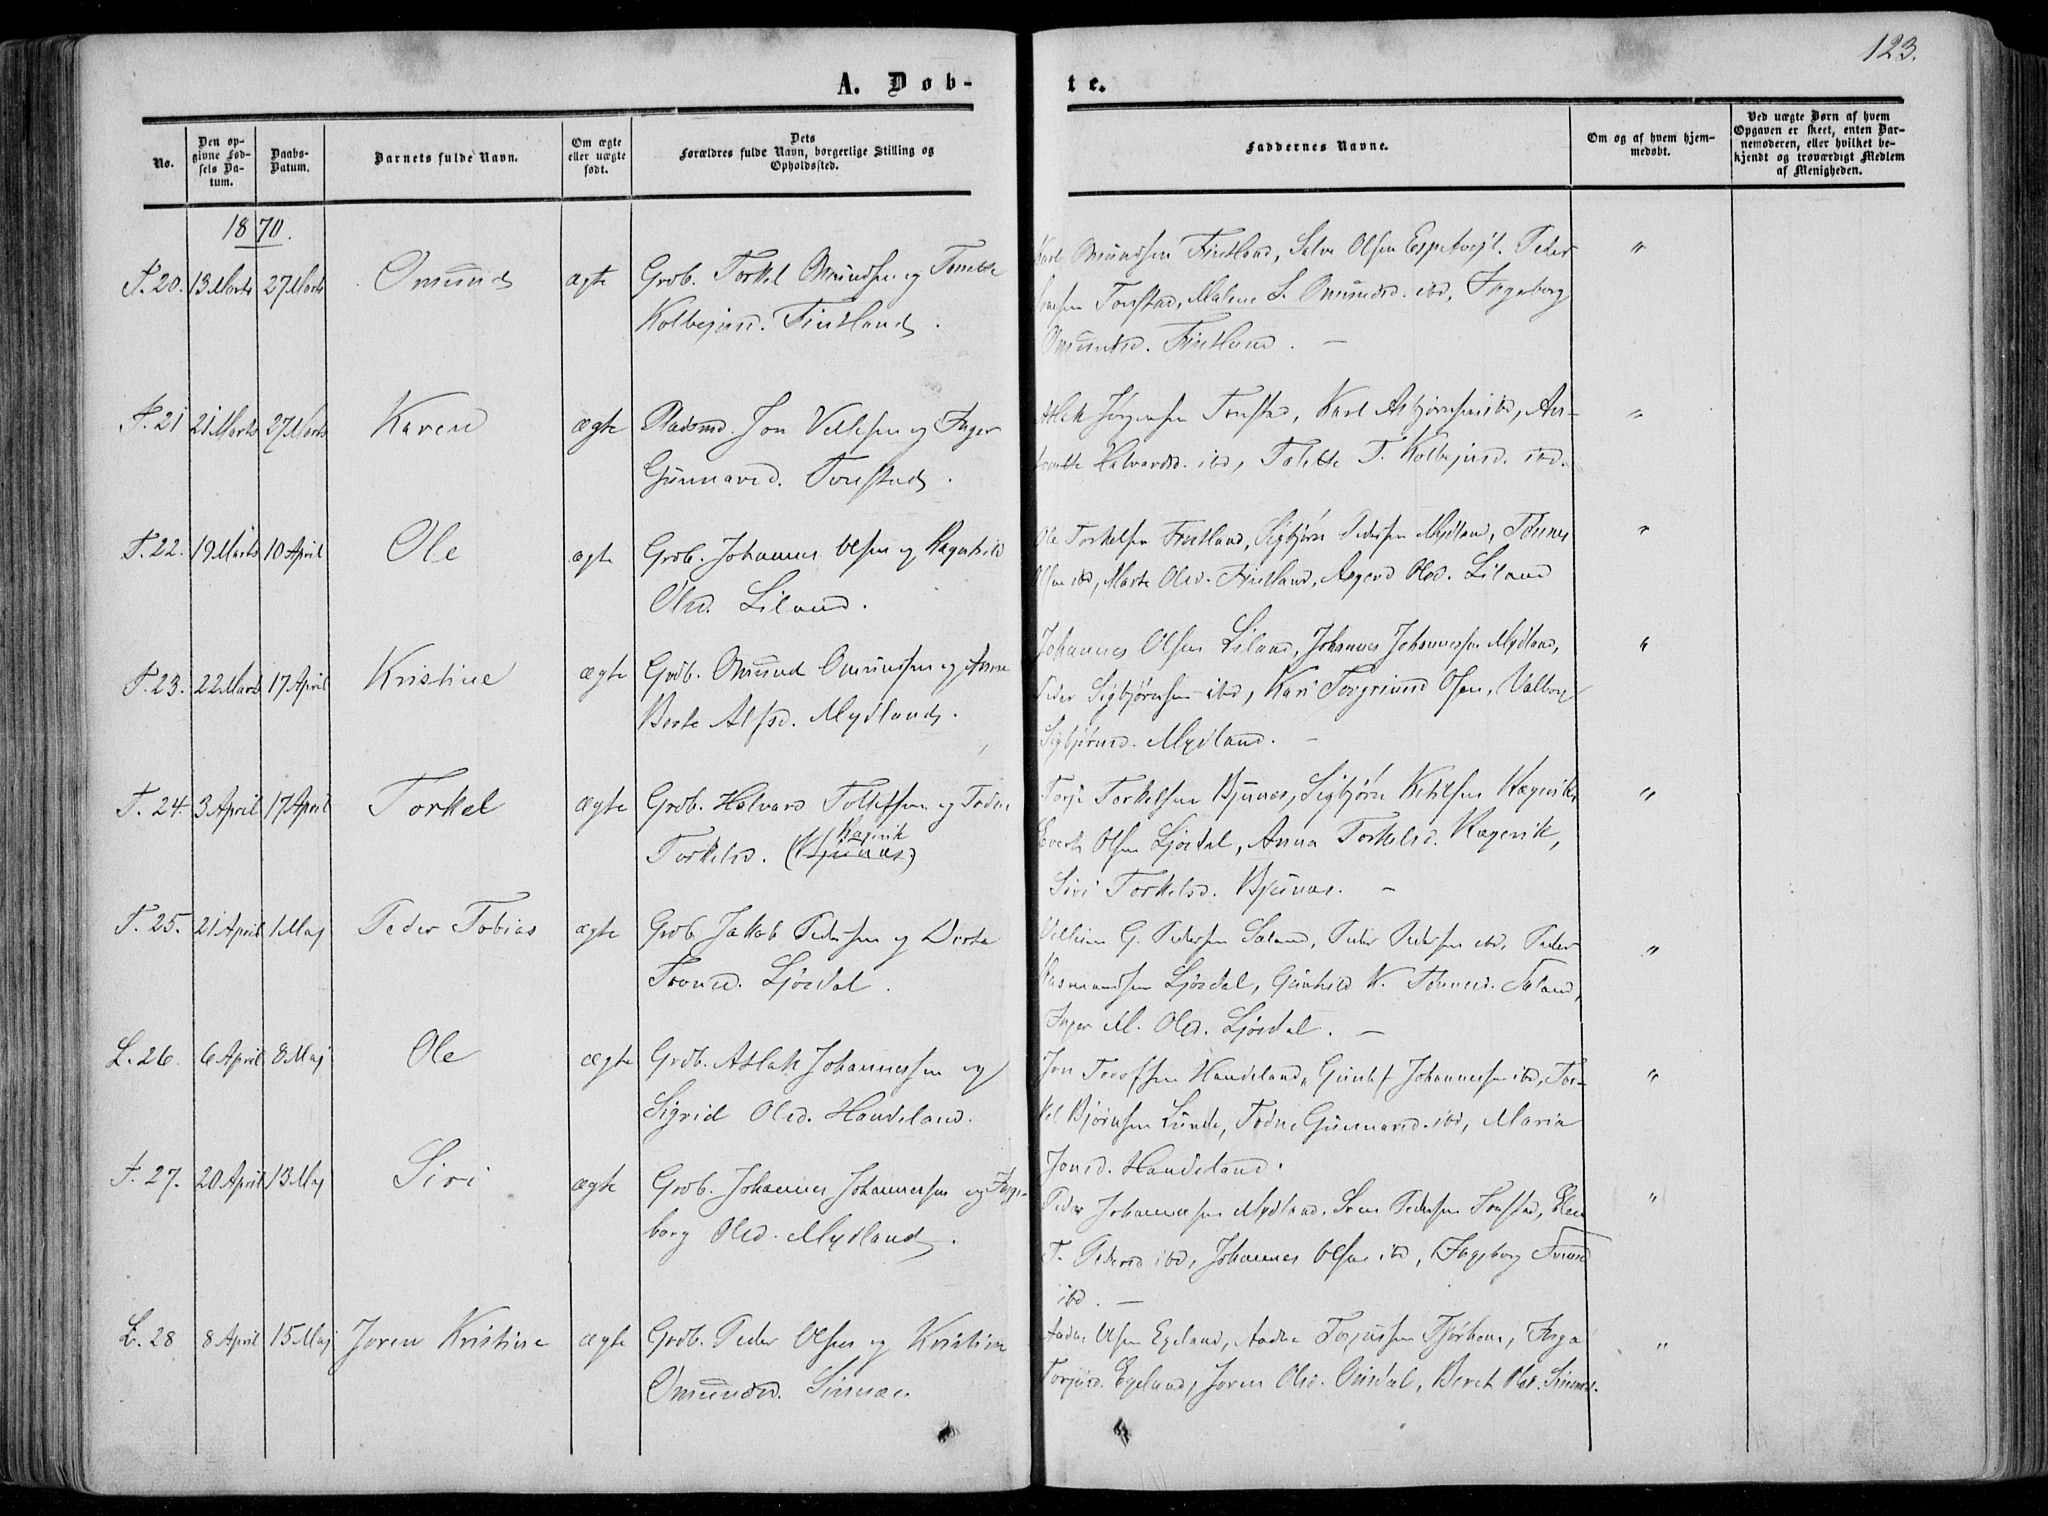 123.
A. Døb-
te.
No.
Den op-
givne Fød-
sels Da-
tum.
Daabs-
Datum.
Barnets fulde Navn.
Om ægte
eller uægte
født.
Dets
Forældres fulde Navn, borgerlige Stilling og
Opholdssted.
Faddernes Navne.
Om og af hvem hjem-
medøbt.
Ved uægte Børn af hvem
Opgaven er skeet, enten Bar-
nemoderen, eller hvilket be-
kjendt og troværdigt Medlem
af Menigheden.
1870.
T. 20. 13 Marts 27 Marts Omund ægte Grdb. Torkel Omundsen og Tonette
Kolbejnsd. Fintland.
Karl Omundsen Fintland, Salve Olsen Espetvejt. Peder
Tonstad, Malene S. Omundsd. ibd, Ingeborg
Omundsd. Fintland. —
"
T. 21 21 Marts 27 Marts Karen ægte Pladsmd. Jon Vellesen og Inger
Gunnarsd. Tonstad.
Atlak Jørgensen Tonstad, Karl Asbjørnsen ibd, An-
Halvardsd. ibd, Tolette T. Kolbejnsd. ibd.
"
T. 22. 19 Marts 10 April Ole ægte Grdb. Johannes Olsen og Ragnhild
Olsd. Liland.
Ole Torkelsen Fintland, Sigbjørn Pedersen Mydland, Tønnes
Olsen ibd, Marte Olsd. Fintland, Asgerd Olsd. Liland
"
T. 23. 22 Marts 17 April Kristine ægte Grdb. Omund Omundsen og Anne
Berte Alfsd. Mydland.
Johannes Olsen Liland, Johannes Johannessen Mydland,
Peder Sigbjørnsen ibd, Kari Torgrimsd Osen, Valborg
Sigbjørnsd. Mydland. —
"
T. 24. 3 April 17 April Torkel ægte Grdb. Halvard Tollefsen og Todne
Rægevik
Torkelsd. (Bjunes)
Torje Torkelsen Bjunes, Sigbjørn Ketilsen Rægevik,
Evert Olsen Ljosdal, Anna Torkelsd. Rægevik,
Siri Torkelsd. Bjunes. —
"
T. 25. 21 April 1 Maj Peder Tobias ægte Grdb. Jakob Pedersen og Dorte
Tronsd. Ljosdal.
Villum G. Pedersen Saland, Peder Pedersen ibd. Peder
Rasmundsen Ljosdal, Gunhild K. Tønnesd. Saland,
Inger M. Olsd. Ljosdal. —
"
L. 26. 6 April 8 Maj Ole ægte Grdb. Atlak Johannessen og
Sigrid Olsd. Haudeland.
Jon Tarofsen Haudeland, Guntf Johannessen ibd, Tor-
kel Bjørnsen Lunde, Todne Gunnarsd. ibd, Maria
Jonsd. Haudeland.
"
T. 27. 20 April 13 Maj Siri ægte Grdb. Johannes Johannessen og Inge-
borg Olsd. Mydland.
Peder Johannessen Mydland. Sven Pedersen Tonstad, Elen
T. Pedersd ibd, Johannes Olsen ibd, Ingeborg
ibd. —
"
L. 28 8 April 15 Maj Joren Kristine ægte Grdb. Peder Olsen og Kristine
Omundsd. Sinnes.
Aadne Olsen Egeland, Aadne Torjussen Tjørhom, Inga
Torjusd. Egeland, Joren Olsd. Ousdal, Beret Olsd. Sinnes.
"